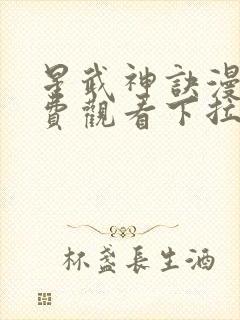 星武神訣漫
費觀看下拉
杯盞長生酒